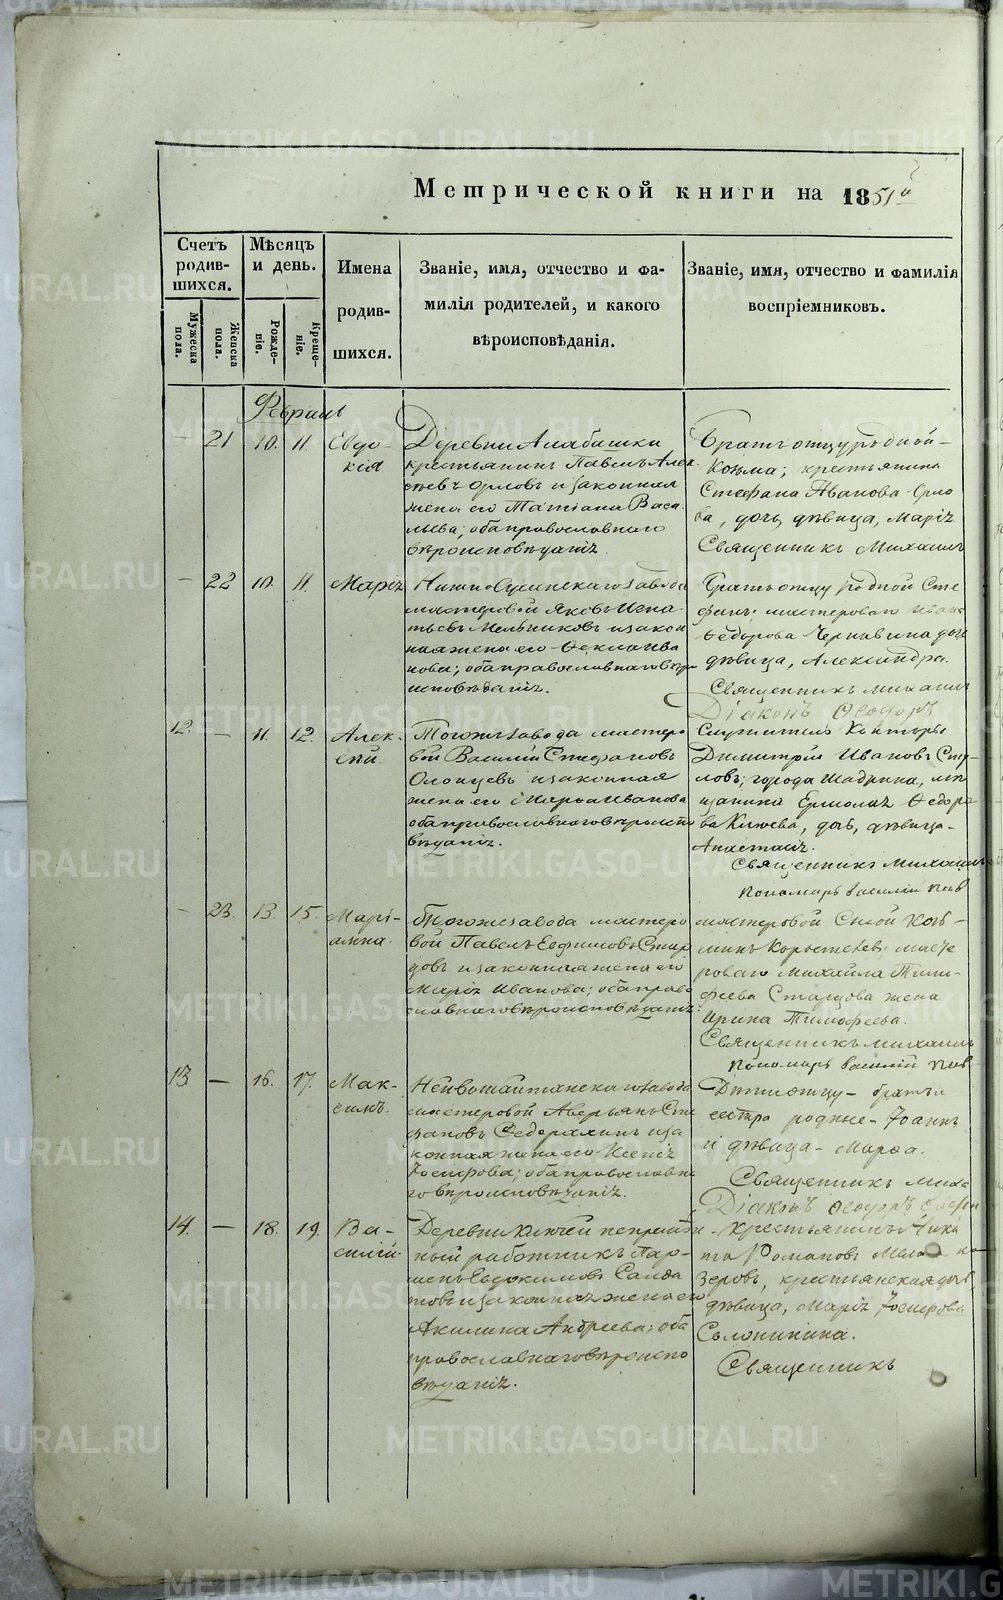 Метрической книги на 1851й
Счетъ родив-шихся.
Мужеска пола.
Женска пола.
Мѣсяцъ и день.
Рожде-ніе.
Креще-ніе.
Имена родив-шихся.
Званіе, имя, отчество и фа-
милія родителей, и какого
вѣроисповѣданія.
Званіе, имя, отчество и фамилія
воспріемниковъ.
Февраль
– 21 10. 11. Евдо-
кія
Деревни Алабашки
крестьянинъ Павелъ Алек-
сѣевъ Орловъ и законная
жена его Татіана Васи-
льева; оба православнаго
вѣроисповѣданія.
Братъ отцу родной –
Козьма; крестьянина
Стефана Иванова Орло
ва, дочь дѣвица, Марія
Священникъ Михаилъ
– 22 10. 11. Марія
мастеровой Яковъ Игна-
тьевъ Мельниковъ и закон
ная жена его Ѳекла Ива
нова; оба православнаго вѣро
исповѣданія.
Братъ отцу родной Сте
фанъ; мастероваго Ивана
Ѳедорова Чернавина дочь
дѣвица, Александра.
Священникъ Михаилъ
Діаконъ Ѳеодоръ
12. – 11. 12. Алек-
сѣй.
Тогоже завода мастеро
вой Василій Стефановъ
и законная
жена его Марья Иванова
оба православнаго вѣроиспо
вѣданія.
Служитель Конторы
Димитрій Ивановъ
города Шадрина, мѣ
щанина Ермолая Ѳедоро
ва дочь, дѣвица –
Анастасія.
Священникъ Михаилъ
Пономарь Василій
– 23. 13. 15. Марі-
амна.
Тогоже завода мастеро
вой Павелъ Евфимовъ Стар
цовъ и законная жена его
Марія Иванова; оба право
славнаго вѣроисповѣданія.
мастеровой Сысой Козь-
минъ масте
роваго Михаила Тимо-
феева Старцова жена
Ирина Тимофеева.
Священникъ Михаилъ
Пономарь Василій
13 – 16. 17. Мак-
симъ.
Нейвошайтанскаго завода
мастеровой Аверьянъ Сте
фановъ и за
конная жена его Ксенія
Іосифова; оба православна
го вѣроисповѣданія.
Дѣти отцу – братъ и
сестра родные – Іоаннъ
и дѣвица – Марѳа.
Священникъ Миха
Діаконъ Ѳеодоръ
14. – 18. 19. Ва-
силій.
Деревни Ключей непремѣн
ный работникъ Пар-
менъ Евдокимовъ Солда
товъ и законная жена его
Акилина Андреева; оба
православнаго вѣроиспо
вѣданія.
Крестьянинъ Ники
та Романовъ
крестьянская дочь,
дѣвица, Марія Іосифова
Солонинина.
Священникъ
METRIKI.GASO-URAL.RU